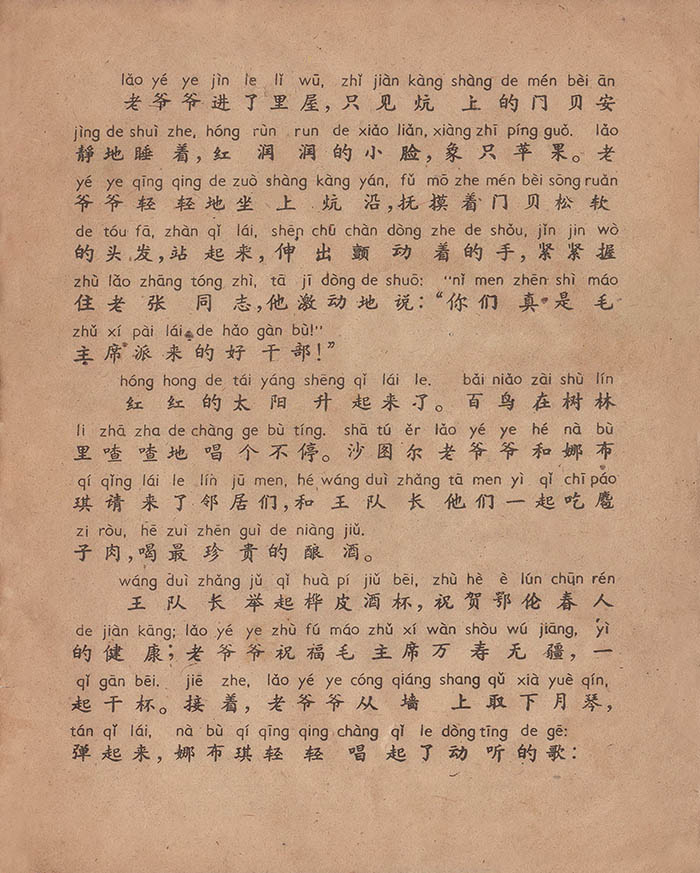 lǎo yé ye jìn le lǐ wū, zhǐ jiàn kàng shàng de mén bèi ān
老爷爷进了里屋,只见炕上的门贝安
jìng de shuì zhe, hóng rùn run de xiǎo liǎn, xiàng zhī píng guǒ. lǎo
静地睡着,红润润的小脸,象只苹果。老
yé ye qīng qing de zuò shàng kàng yán, fǔ mō zhe mén bèi sōng ruǎn
爷爷轻轻地坐上炕沿,抚摸着门贝松软
de tóu fā, zhàn qǐ lái, shēn chū chàn dòng zhe de shǒu, jǐn jin wò
的头发,站起来,伸出颤动着的手,紧紧握
zhù lǎo zhāng tóng zhì, tā jī dòng de shuō: "nǐ men zhēn shì máo
住老张同志,他激动地说:“你们真是毛
zhǔ xí pài lái de hǎo gàn bù!"
主席派来的好干部!”
hóng hong de tái yáng shēng qǐ lái le. bǎi niǎo zài shù lín
红红的太阳升起来了。百鸟在树林
li zhā zha de chàng ge bù tíng. shā tú ěr lǎo yé ye hé nà bù
里喳喳地唱个不停。沙图尔老爷爷和娜布
qí qǐng lái le lín jū men, hé wáng duì zhǎng tā men yì qǐ chī páo
琪请来了邻居们,和王队长他们一起吃麅
zi ròu, hē zuì zhēn guì de niàng jiǔ.
子肉,喝最珍贵的酿酒。
wáng duì zhǎng jǔ qǐ huà pí jiǔ bēi, zhù hè è lún chūn rén
王队长举起桦皮酒杯,祝贺鄂伦春人
de jiàn kāng; lǎo yé ye zhù fú máo zhǔ xí wàn shòu wú jiāng, yì
的健康;老爷爷祝福毛主席万寿无疆,一
qǐ gān bēi. jiē zhe, lǎo yé ye cóng qiáng shang qǔ xià yuè qín,
起干杯。接着,老爷爷从墙上取下月琴,
tán qǐ lái, nà bù qí qīng qing chàng qǐ le dòng tīng de gē:
弹起来,娜布琪轻轻唱起了动听的歌: